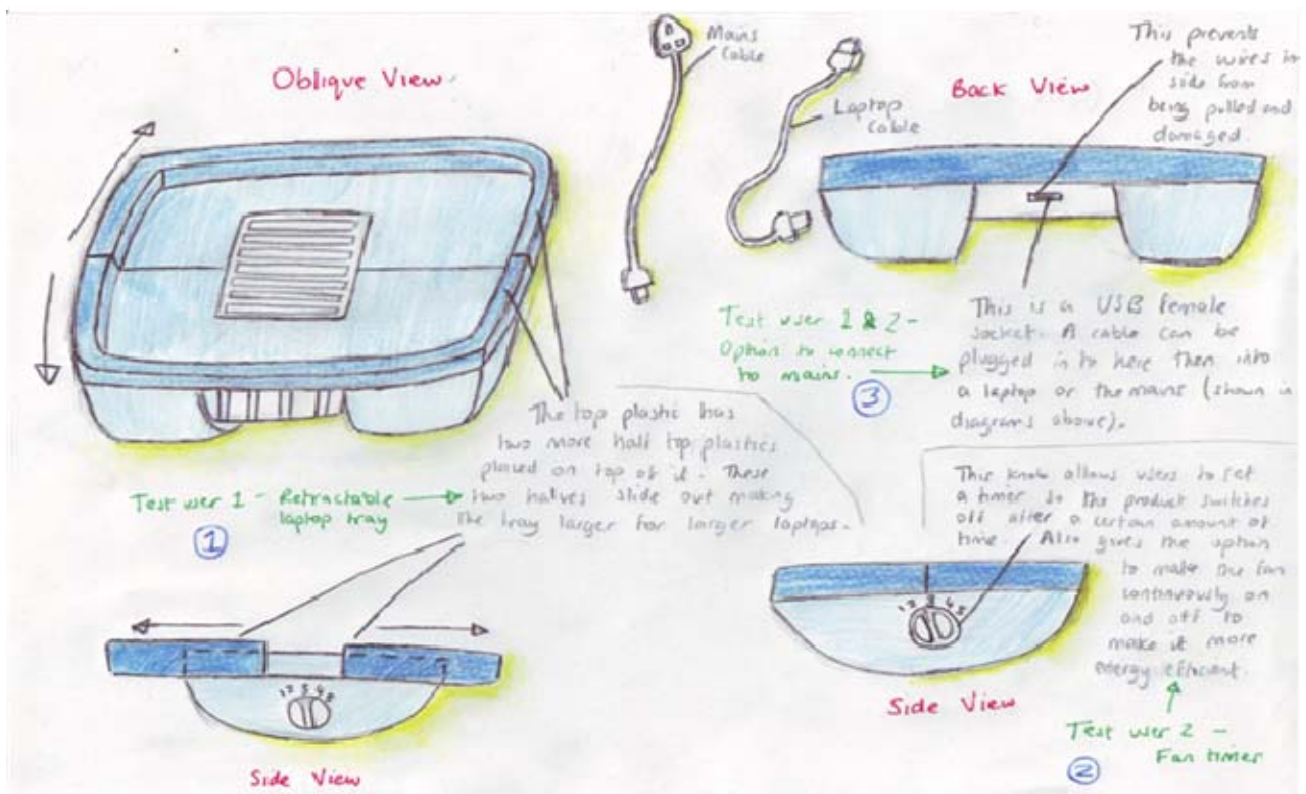 Oblique View
Mains
Cable
Laptop
Cable
Back View
This prevents
the wires in
side from
being pulled and
damaged.
Test user 1 & 2 -
Option to connect
to mains.
3
This is a USB female
socket. A cable can be
plugged in to here then into
a laptop or the mains (shown in
diagrams above).
The top plastic has
two more half top plastics
placed on top of it. These
two halves slide out making
the tray larger for larger laptops.
Test user 1 - Retractable
laptop tray
1
This knob allows users to set
a timer so the product switches
off after a certain amount of
time. Also gives the option
to make the fan
continuously on
and off to
make it more
energy efficient.
1 2 3 4 5
Side View
1 2 3 4 5
Side View
Test user 2 -
Fan timer
2